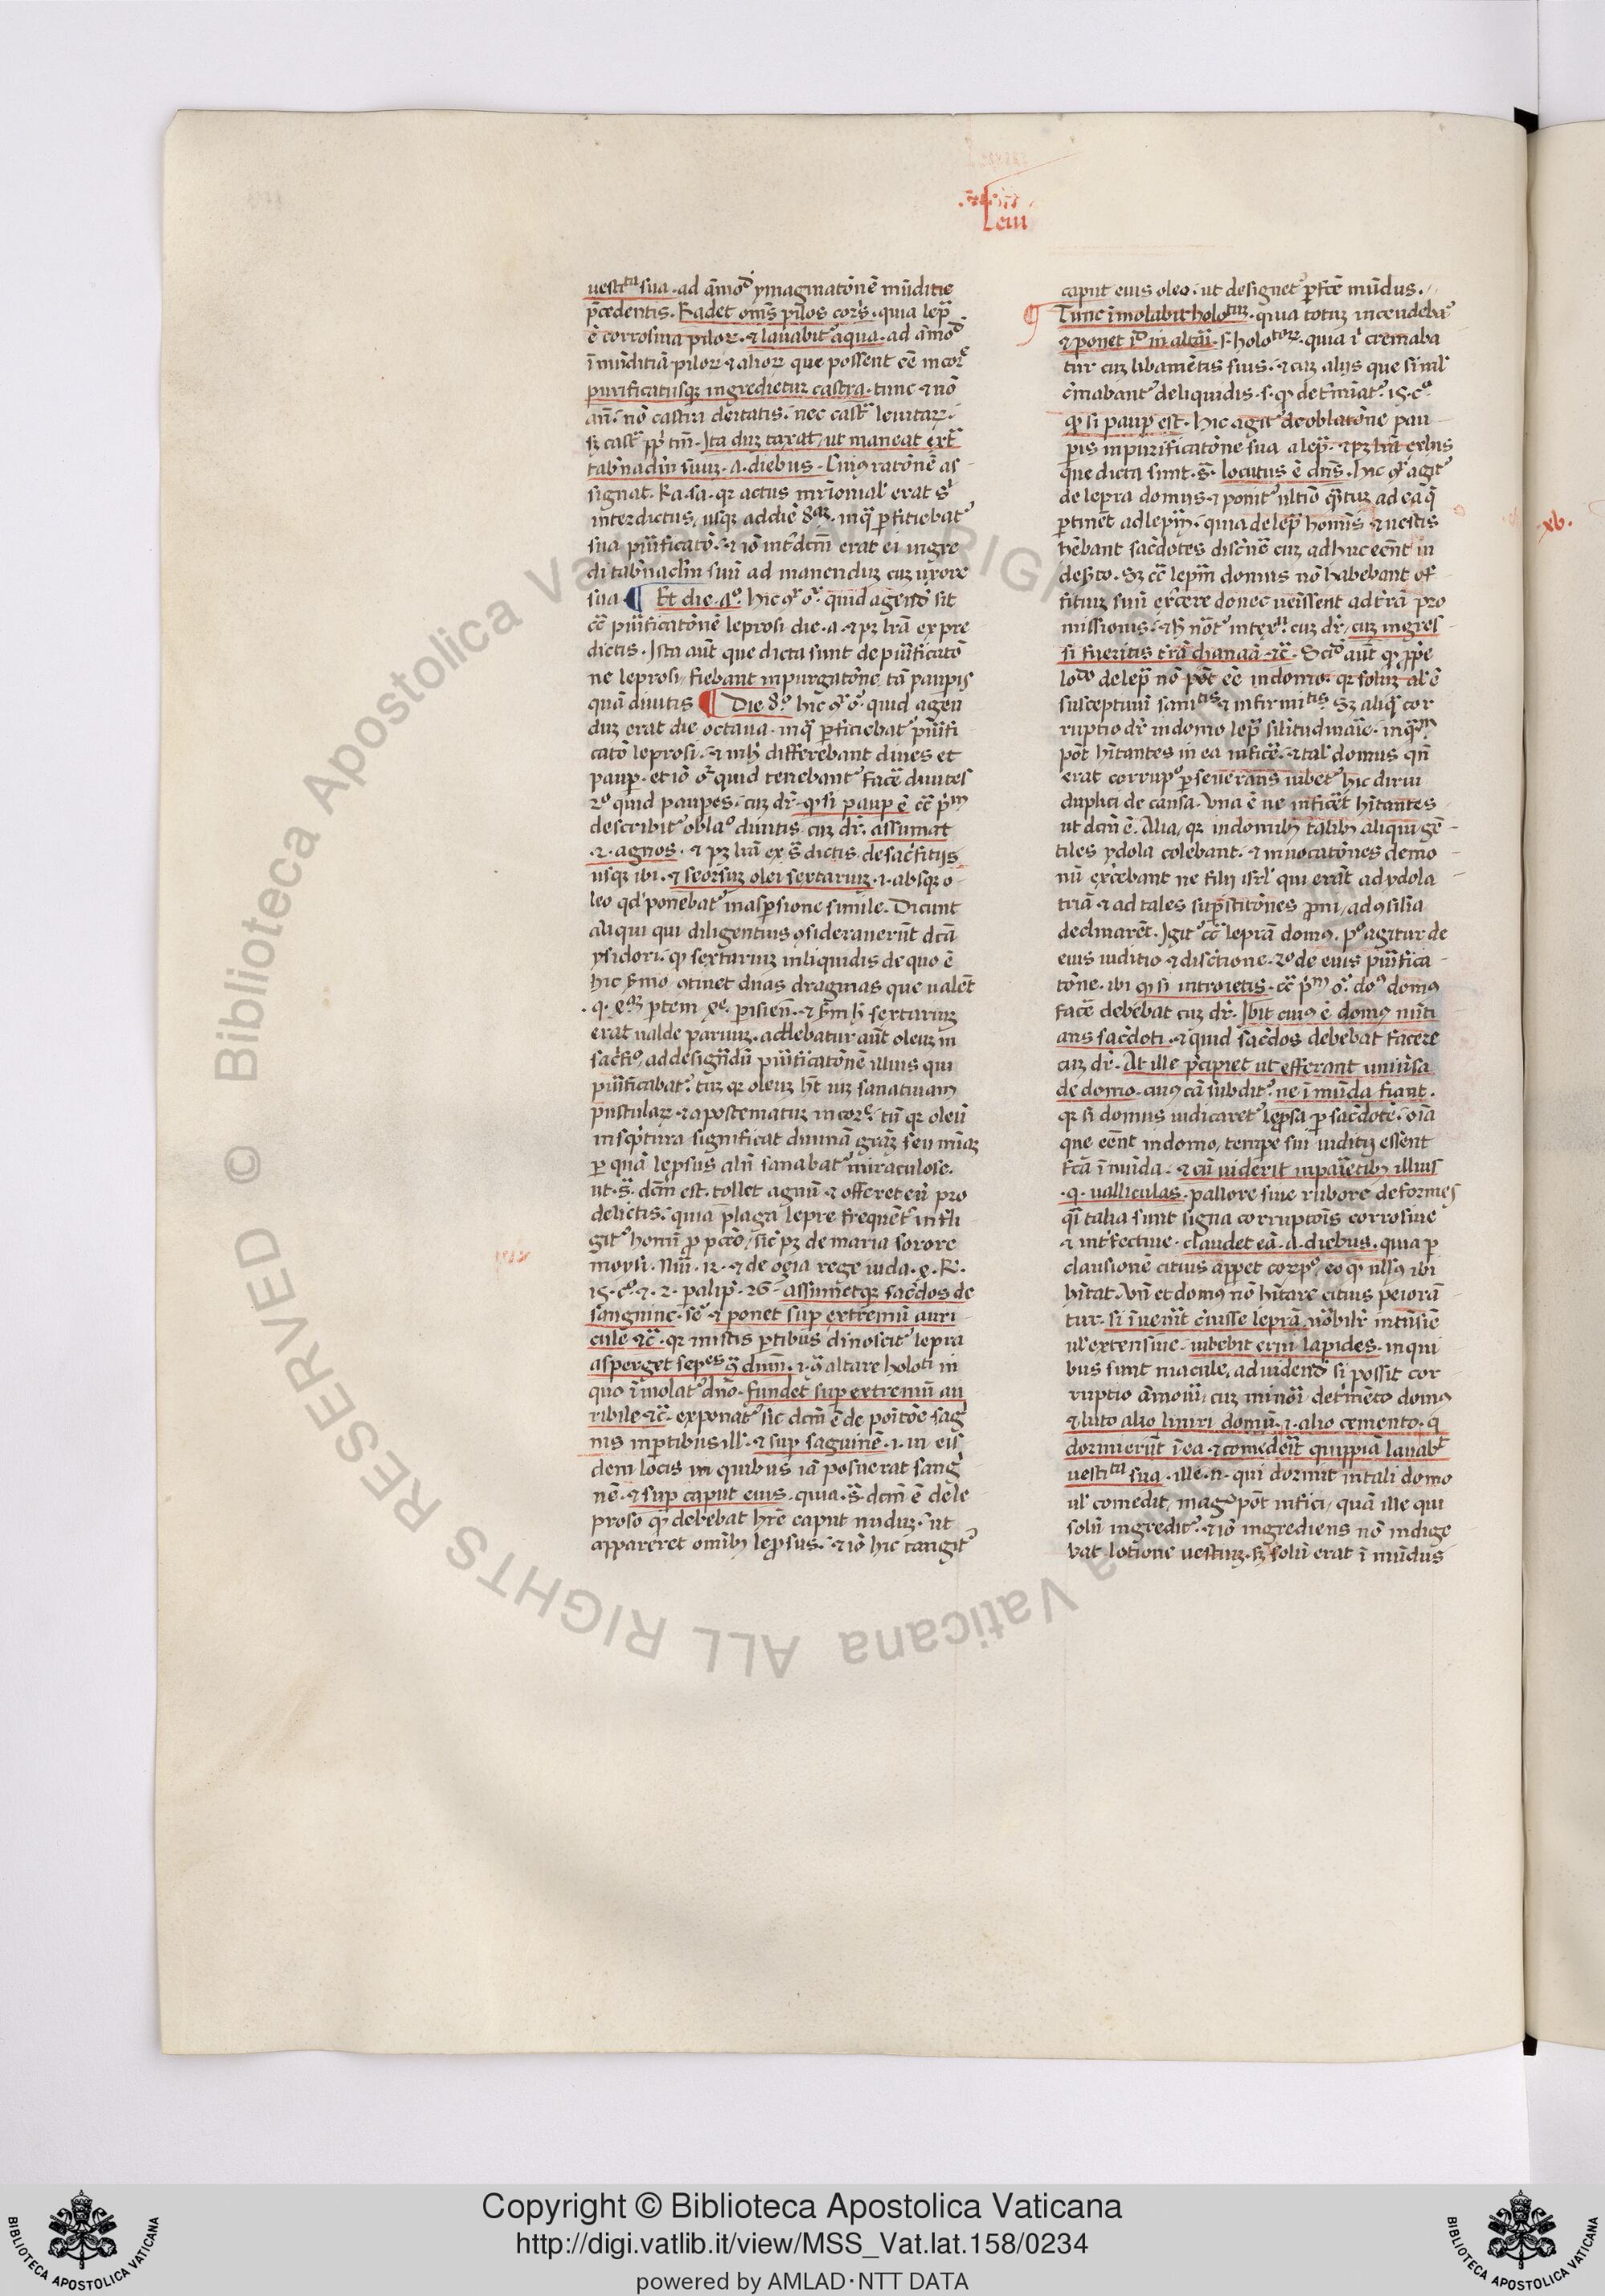 Leui
uestitᵃ sua · ad ãmoᵈ ymaginatõnẽ mũditie
p̃cedentis · Radet om̃s pilos cor̃s · quia lep̃
ẽ corrosiua piloꝝ · ⁊ lauabit᷒ aqua · ad ãmoᵈ
ĩmũditiã piloꝝ ⁊ alioꝝ que possent eẽ in cor̃
purificatusqꝫ ingredietur castra · tunc ⁊ nõ
añ · nõ castra deitatis · nec cast̃ leuitaꝝ ·
sꝫ cast̃ pp̃ tm̃ · Ita duꝫ taxat / ut maneat ext̃
tab̃nac̃lm suuꝫ · ʌ · diebus · Cuiꝰ ratõnẽ as
signat · Ra · sa · qꝛ actus mr̃ionial᷒ erat s̃
interdictus, usqꝫ ad diẽ 8ᵃꝫ · in q̃ p̃ficiebat᷒
sua pur̃ificatõ · ⁊ iõ int̃dcm̃ erat ei ingre
di tab̃nac̃lm suũ ad manenduꝫ cuꝫ uxore
sua ¶ Et die · ʌᵒ · hic ꝯ̃ o᷒ · quid agendũ sit
cc̃ pur̃ificatõnẽ leprosi die · ʌ · ⁊ pꝫ lr̃a ex pre
dictis · Ista aũt que dicta sunt de pur̃ificatõ
ne leprosi, fiebant in purgatõne tã paup̃is
quã diuitis ¶ Die 8ᵒ · hic ꝯ̃ o᷒ · quid agen
duꝫ erat die octaua · in q̃ p̃ficiebat᷒ pur̃ifi
catõ leprosi · ⁊ in hͥ differebant diues et
paup̃ · et iõ o᷒ quid tenebant᷒ facẽ diuites
2ᵒ quid paupes · cuꝫ dr̃ · qͥ si paup̃ ẽ cc̃ pͥᵐ
describit᷒ oblaᵒ diuitis cuꝫ dr̃ · assumat
· 2 · agnos · ⁊ pꝫ lr̃a ex s̃ dictis de sac̃fitijs
usqꝫ ibi · ⁊ seorsuꝫ olei sextariuꝫ · i · absqꝫ o
leo qd᷒ ponebat᷒ in asp̃sione simile · Dicunt
aliqui qui diligentius ꝯsiderauerũt dc̃a
ysidori · ꝙ sextariuꝫ in liquidis de quo ẽ
hic s̃mo ꝯtinet duas dragmas que ualẽt
erat ualde paruuꝫ · addebatur aũt oleuꝫ in
sac̃fiᵒ, ad desig̃ndũ pur̃ificatõnẽ illius qui
pur̃ificabat᷒ · tuꝫ qꝛ oleuꝫ hͭ uiꝫ sanatiuam
pustulaꝝ · ⁊ apostematuꝫ in cor̃ · tũ qꝛ oleũ
in sc̃ptura significat diuinã gr̃aꝫ seu mĩaꝫ
ꝑ quã lep̃sus aliñ sanabat᷒ miraculose ·
ut · s̃ · dcm̃ est · tollet agnũ ⁊ offeret eũ pro
delictis · quia plaga lepre frequẽt᷒ infli
git᷒ homĩ ꝓ pccõ, sic̃ pꝫ de maria sorore
moysi · Nũi · 12 · ⁊ de ozia rege iuda · 4 · R̃ ·
15 · cᵒ · ⁊ · 2 · palip̃ · 26 · assumetqꝫ sac̃dos de
sanguine · sc̃ · ⁊ ponet sup̃ extremũ auri
cule ⁊c̃ · qꝛ in istis p̃tibus dinoscit᷒ lepra
asperget sepᵉˢ ꝯ̃ dnm̃ · i · ꝯ̃ altare holoti in
quo ĩmolat᷒ dño · fundet sup̃ extremũ au
ribile ⁊c̃ · exponat᷒ sic̃ dcm̃ ẽ de poitõe sag̃
nis in p̃tibus ill᷒ · ⁊ sup̃ saguinẽ · i · in eis
dem locis in quibus iã posuerat sang̃
nẽ · ⁊ sup̃ caput eius · quia · s̃ · dcm̃ ẽ de le
proso ꝙ debebat hr̃e caput nuduꝫ · ut
appareret om̃ibꝫ lep̃sus · ⁊ iõ hic tangit᷒
caput eius oleo · ut designet᷒ p̃fcẽ mũdus ·
Tunc ĩmolabit holoᵗᵘꝫ · quia totuꝫ incendebat᷒
⁊ ponet iᵈ in altari · s · holoᵗᵘꝫ · quia ĩ cremaba
tur cuꝫ libamẽtis suis · ⁊ cuꝫ alijs que simil᷒
c̃mabant᷒ de liquidis · s · ꝙ det̃miat᷒ · 15 · cᵒ ·
ꝙ si paup̃ est · hic agit᷒ de oblatõne pau
p̃is in purificatõne sua a lep̃ · ⁊ pꝫ lr̃a ex hiis
que dicta sunt · s̃ · locutus ẽ dñs · hic ꝯ̃ agit᷒
de lepra domus · ⁊ ponit᷒ ultiõ q̃tuꝫ ad ea q̃
p̃tinẽt ad lepm̃ · quia de lep̃ homĩs ⁊ uestis
hẽbant sac̃dotes disc̃nẽ cuꝫ adhuc eẽnt in
des̃to · Sꝫ cc̃ lepm̃ domus nõ habebant of
fitiuꝫ suũ exc̃ere donec ueĩssent ad tr̃ã pro
missionis · ⁊ hͥ nõt᷒ in tex̃ᵘ · cuꝫ dr̃, cuꝫ ingres
si fueritis tr̃ã chanaã ⁊c̃ · Scᵈ᷒ aũt ꝙ ꝓp̃e
loᵈᵒ de lep̃ nõ põt eẽ in domo · qꝛ soluꝫ aĩal ẽ
susceptiuũ saniᵗⁱˢ ⁊ infirmiᵗⁱˢ · Sꝫ aliq̃ cor
ruptio dr̃ in domo lep̃ silitudinaĩe · in q̃ᵐ
põt hĩtantes in ea inficẽ · ⁊ tal᷒ domus qñ
erat corrupᵒ p̃seuerans iubet᷒ hic dirui
duplici de causa · Vna ẽ ne inficẽt hĩtantes
ut dcm̃ ẽ · Alia, qꝛ in domibꝫ talibꝫ aliqui gẽ
tiles ydola colebant · ⁊ inuocatões demo
nũ exc̃ebant ne filij isrl᷒ qui erãt ad ydola
triã ⁊ ad tales sup̃stitõnes p̃ni, ad ꝯsilia
declinarẽt · Igit᷒ cc̃ leprã domꝰ · pͦ agitur de
eius iuditio ⁊ disc̃tione · 2ᵒ de eius pur̃ifica
tõne · ibi ꝙ si introietis · cc̃ pͥᵐ o᷒ · doᵒ domꝰ
facẽ debebat cuꝫ dr̃ · Ibit cuiꝰ ẽ domꝰ nũti
ans sac̃doti · ⁊ quid sac̃dos debebat facere
cuꝫ dr̃ · At ille p̃cipiet ut efferant uniũsa
de domo · cuiꝰ cã subdit᷒ · ne ĩmũda fiant ·
qꝛ si domus iudicaret᷒ lep̃sa ꝑ sac̃dotẽ · oĩa
que eẽnt in domo, tempe sui iuditij essent
fc̃a ĩmũda · ⁊ cũ uiderit in paĩetibꝫ illius
· q · ualliculas · pallore siue rubore deformes
q̃i talia sunt signa corruptõis corrosiue
⁊ inf̃ectiue · claudet eã · ʌ · diebus · quia ꝑ
clausionẽ citius app̃et corpᵒ, eo ꝙ ullꝰ ibi
hĩtat · Vñ et domꝰ nõ hĩtate citius peiorã
tur · si ĩuenit c̃uisse leprã, nõbilr̃ intẽsiẽ
ul᷒ extensiue · iubebit erui lapides · in qui
bus sunt macule, ad uidendũ si possit cor
ruptio ãmoui, cuꝫ minõi det̃mẽto domꝰ
⁊ luto alio liniri domũ · i · alio cemento · q̃
dormierũt ĩ ea ⁊ comed̃it quippiã lauabᵗ
uestitᵃ sua · ille · n · qui dormit in tali domo
ul᷒ comedit, magͥ põt infici, quã ille qui
solũ ingredit᷒ · ⁊ iõ ingrediens nõ indige
bat lotione uestiuꝫ · sꝫ solũ erat ĩmũdus
xv.
© Biblioteca Apostolica Vaticana ALL RIGHTS RESERVED
Copyright © Biblioteca Apostolica Vaticana
http://digi.vatlib.it/view/MSS_Vat.lat.158/0234
powered by AMLAD·NTT DATA
BIBLIOTECA APOSTOLICA VATICANA
BIBLIOTECA APOSTOLICA VATICANA